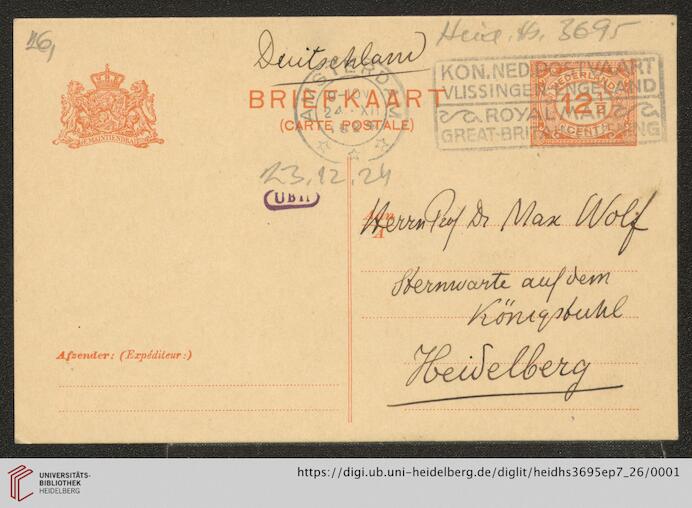 26,
Deutschland
Heid. Hs. 3695
JE MAINTIENDRAI
BRIEFKAART
(CARTE POSTALE)
AMSTERDAM
24 XII
KON. NED. POSTVAART
VLISSINGEN-ENGELAND
ROYAL MAIL
NEDERLAND
12½
23.12.24
UBH
Aan
A
Herrn Prof Dr Max Wolf
Sternwarte auf dem
Königstuhl
Heidelberg
Afzender: (Expéditeur:)
UNIVERSITÄTS-
BIBLIOTHEK
HEIDELBERG
https://digi.ub.uni-heidelberg.de/diglit/heidhs3695ep7_26/0001